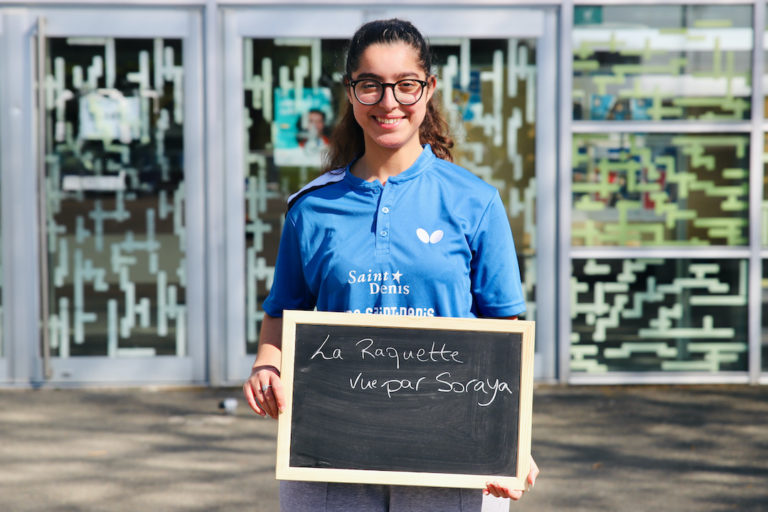 Saint
Denis
La Raquette
vue par Soraya